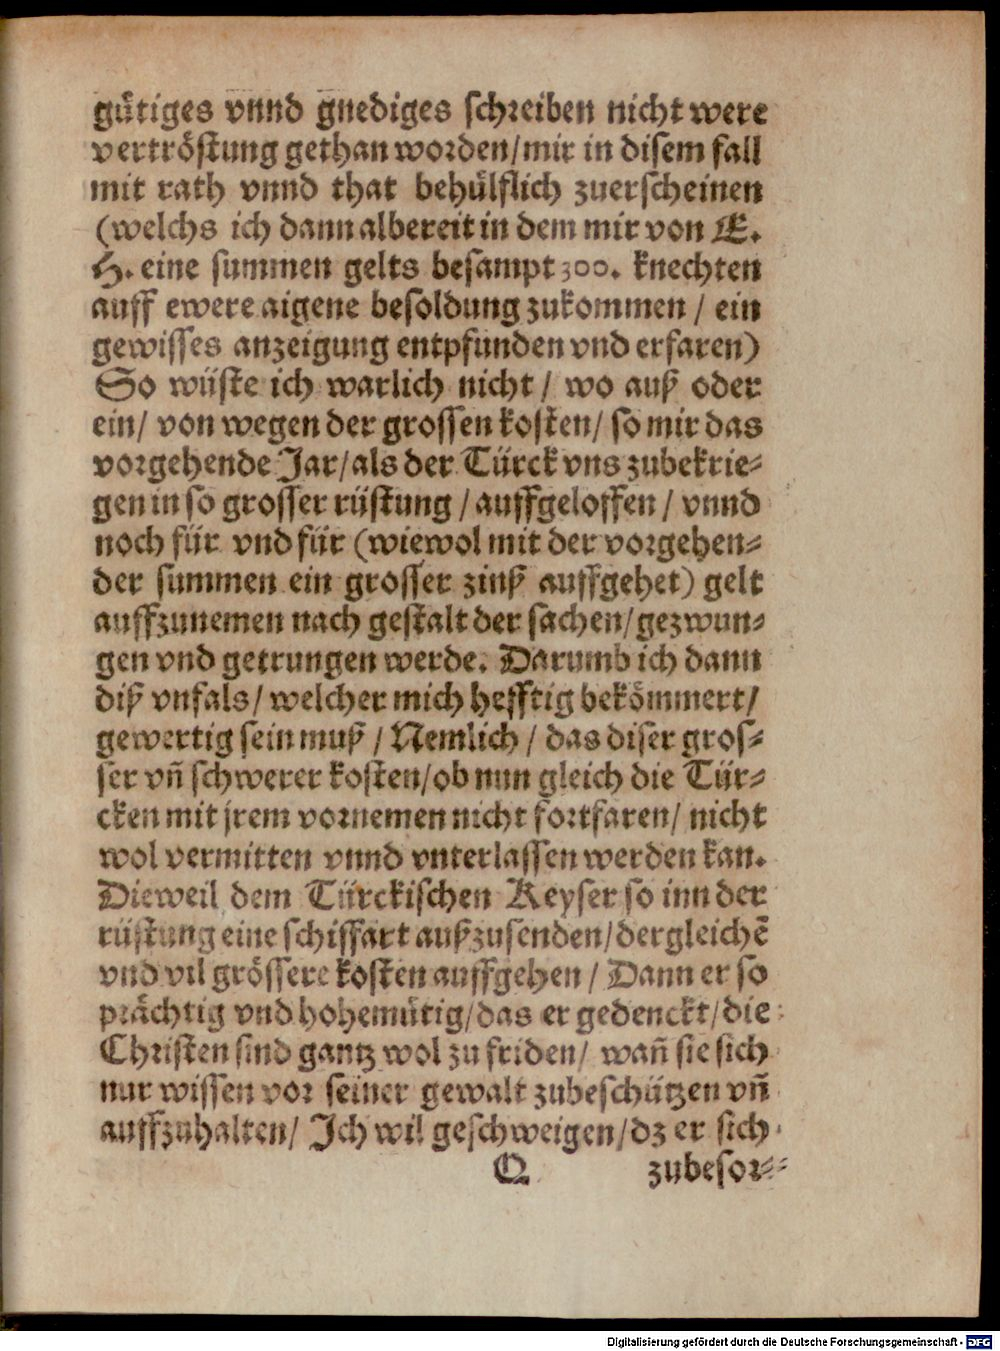 gütiges vnnd gnediges schreiben nicht were
vertröstung gethan worden/mir in disem fall
mit rath vnnd that behülflich zuerscheinen
(welchs ich dann albereit in dem mir von E.
H. eine summen gelts besampt 300. knechten
auff ewere aigene besoldung zukommen / ein
gewisses anzeigung entpfunden vnd erfaren)
So wüste ich warlich nicht / wo auß oder
ein/ von wegen der grossen kosten/ so mir das
vorgehende Jar/als der Türck vns zubekrie⸗
gen in so grosser rüstung / auffgeloffen / vnnd
noch für vnd für (wiewol mit der vorgehen⸗
der summen ein grosser zinß auffgehet) gelt
auffzunemen nach gestalt der sachen/gezwun⸗
gen vnd getrungen werde. Darumb ich dann
diß vnfals/ welcher mich hefftig bekömmert/
gewertig sein muß / Nemlich / das diser gros⸗
ser vñ schwerer kosten/ob nun gleich die Tür⸗
cken mit jrem vornemen nicht fortfaren/ nicht
wol vermitten vnnd vnterlassen werden kan.
Dieweil dem Türckischen Keyser so inn der
rüstung eine schiffart außzusenden/dergleichẽ
vnd vil grössere kosten auffgehen / Dann er so
prächtig vnd hohemütig/das er gedenckt/die
Christen sind gantz wol zu friden/ wañ sie sich
nur wissen vor seiner gewalt zubeschützen vñ
auffzuhalten/ Ich wil geschweigen/dz er sich
Q zubesor⸗
Digitalisierung gefördert durch die Deutsche Forschungsgemeinschaft - DFG